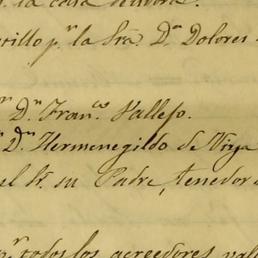 . la casa
rillo p.r la Sra. D.a Dolores
D.n Fran.co Vallejo.
D.n Hermenegildo de Viya
el Sr. su Padre, tenedor
todos los acreedores